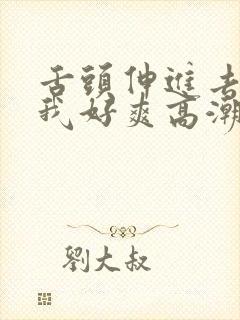 舌頭伸進去
我好爽高潮
劉大叔